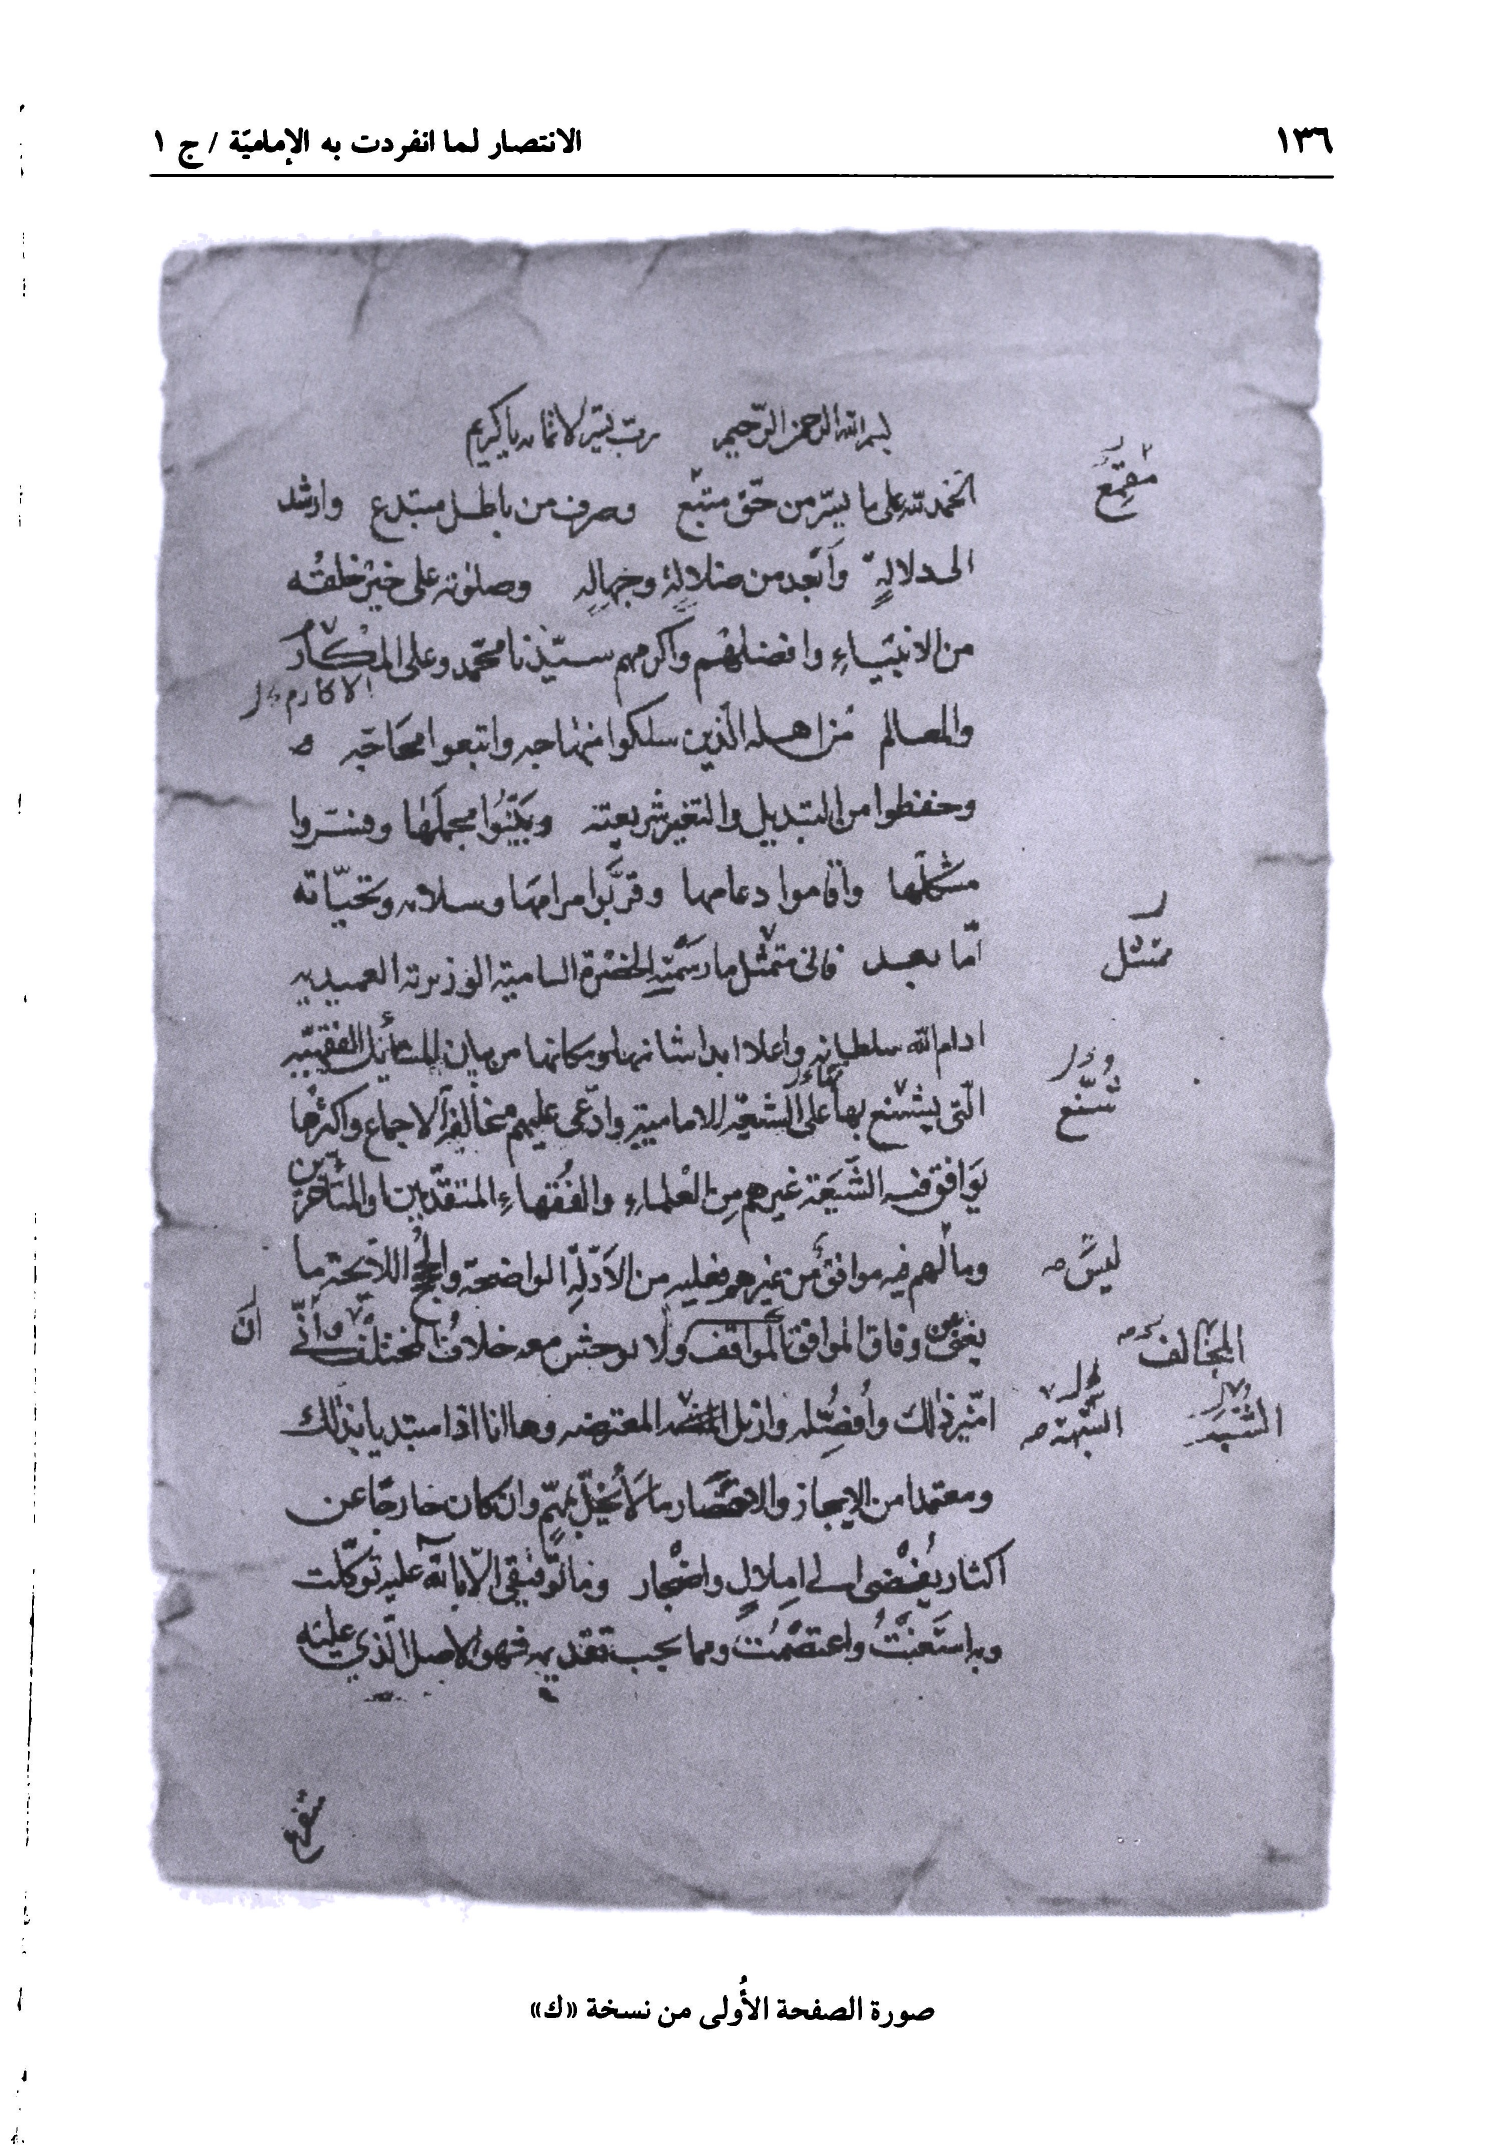 ١٣٦
الانتصار لما انفردت به الإماميّة / ج ١
بسم الله الرحمن الرّحيم ربّ يسّر يا كريم
الحمد لله على ما يسّر من حقّ متّبع وصرف من باطل مبتدع وارشد
الى دلالةٍ وأبعد من ضلالةٍ وجهالةٍ وصلوته على خير خلقه
من الانبياءِ وافضلهم وأكرمهم سيّدنا محمّد وعلى المكارم
الاكارم
والمعالم من اهله الّذين سلكوا منهاجه واتبعوا محاجّه
وحفظوا من التبديل والتغير شريعته وبيّنوا مجملها وفسّروا
مشكلها وأقاموا دعامها وقرّبوا مرامها وسلامه وتحيّاته
أمّا بعد فانى متمثّل ما رسمته الحضرة السامية الوزيرية العميدية
ادام الله سلطانها واعلا ابدا شانها ومكانها من بيان المسائل الفقهيّة
الّتى يشنع بها على الشيعة الامامية وادّعى عليهم مخالفة الاجماع واكثرها
يوافق فيه الشّيعة غيرهم من العلماء والفقهاءِ المتقدّمين والمتأخرين
وما لهم فيه موافق من غيرهم فعليه من الأدلّة الواضحة والحجج اللايحة ما
يغنى عن وفاق الموافق ولا يوحش معه خلاف المختلف وأنّى
ابيّن ذلك وأفصّله وازيل المعترضه وها انا اذا مبتديا بذلك
ومعتمدا من الايجاز والاختصار ما لا يُخلّ بمهمّ وان كان خارجًا عن
اكثار يُفضى الى املالٍ واضجار وما توفيقى الّا بالله عليه توكّلت
وبه استعنتُ واعتصمتُ ومما يجب تقديمه فهو الاصل الّذي عليه
مقمع
متثل
تشنّع
ليس
المخالف
الشبهة
أنّ
صورة الصفحة الأُولى من نسخة «ك»